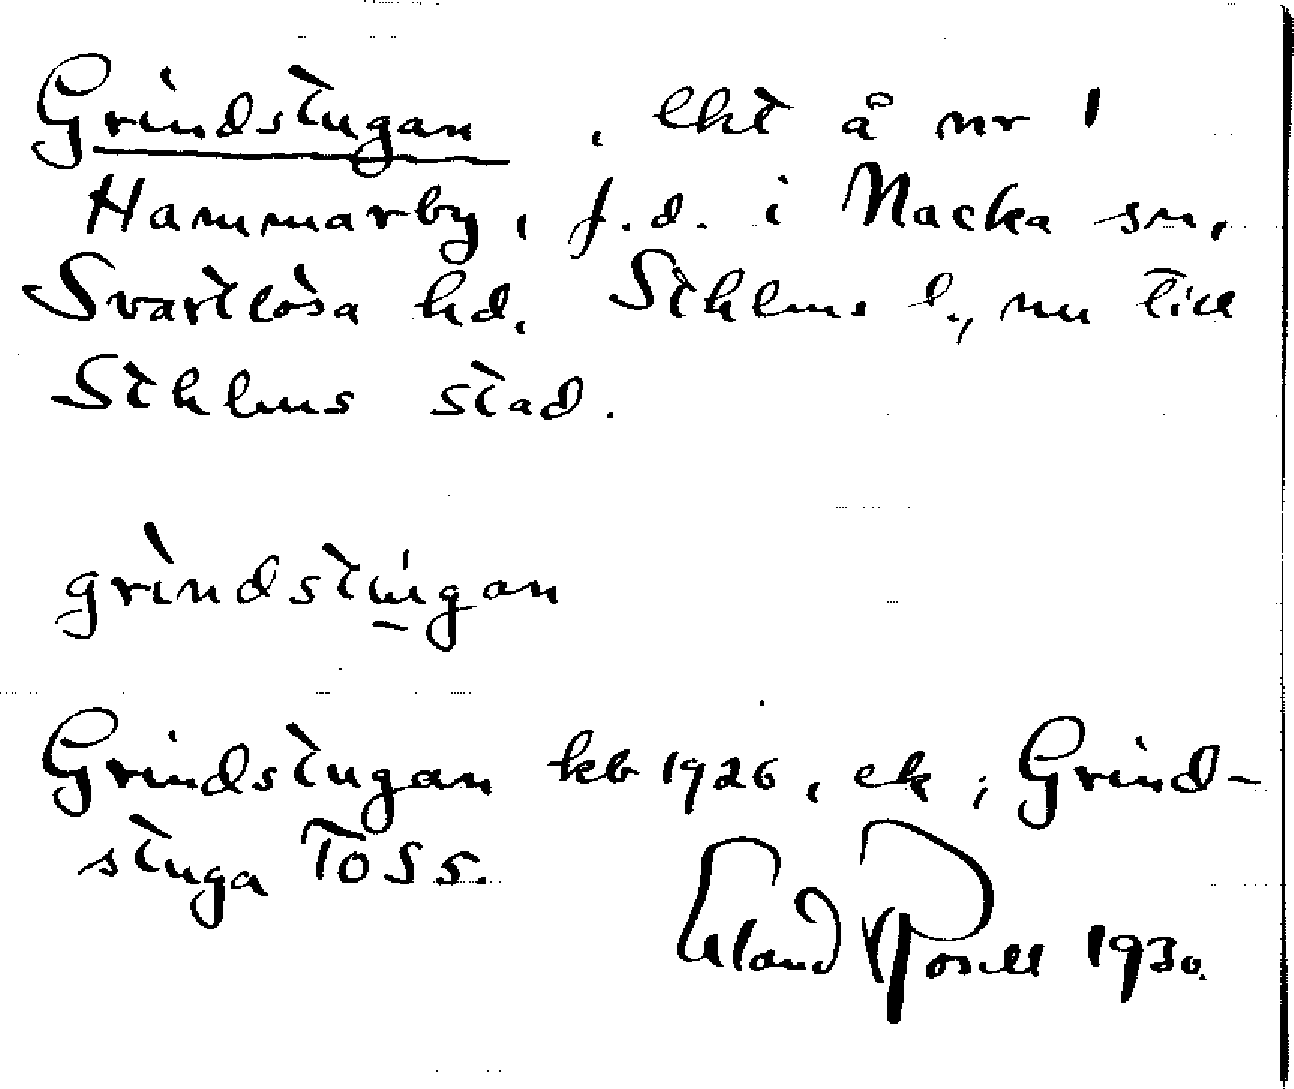 Grindstugan, lht å nr 1
Hammarby, f.d. i Nacka sn,
Svartlösa hd, Sthlms l., nu till
Sthlms stad.
grindstu̲gan
Grindstugan kb 1926, ek; Grind-
stuga TOSS.
Erland Rosell 1930.